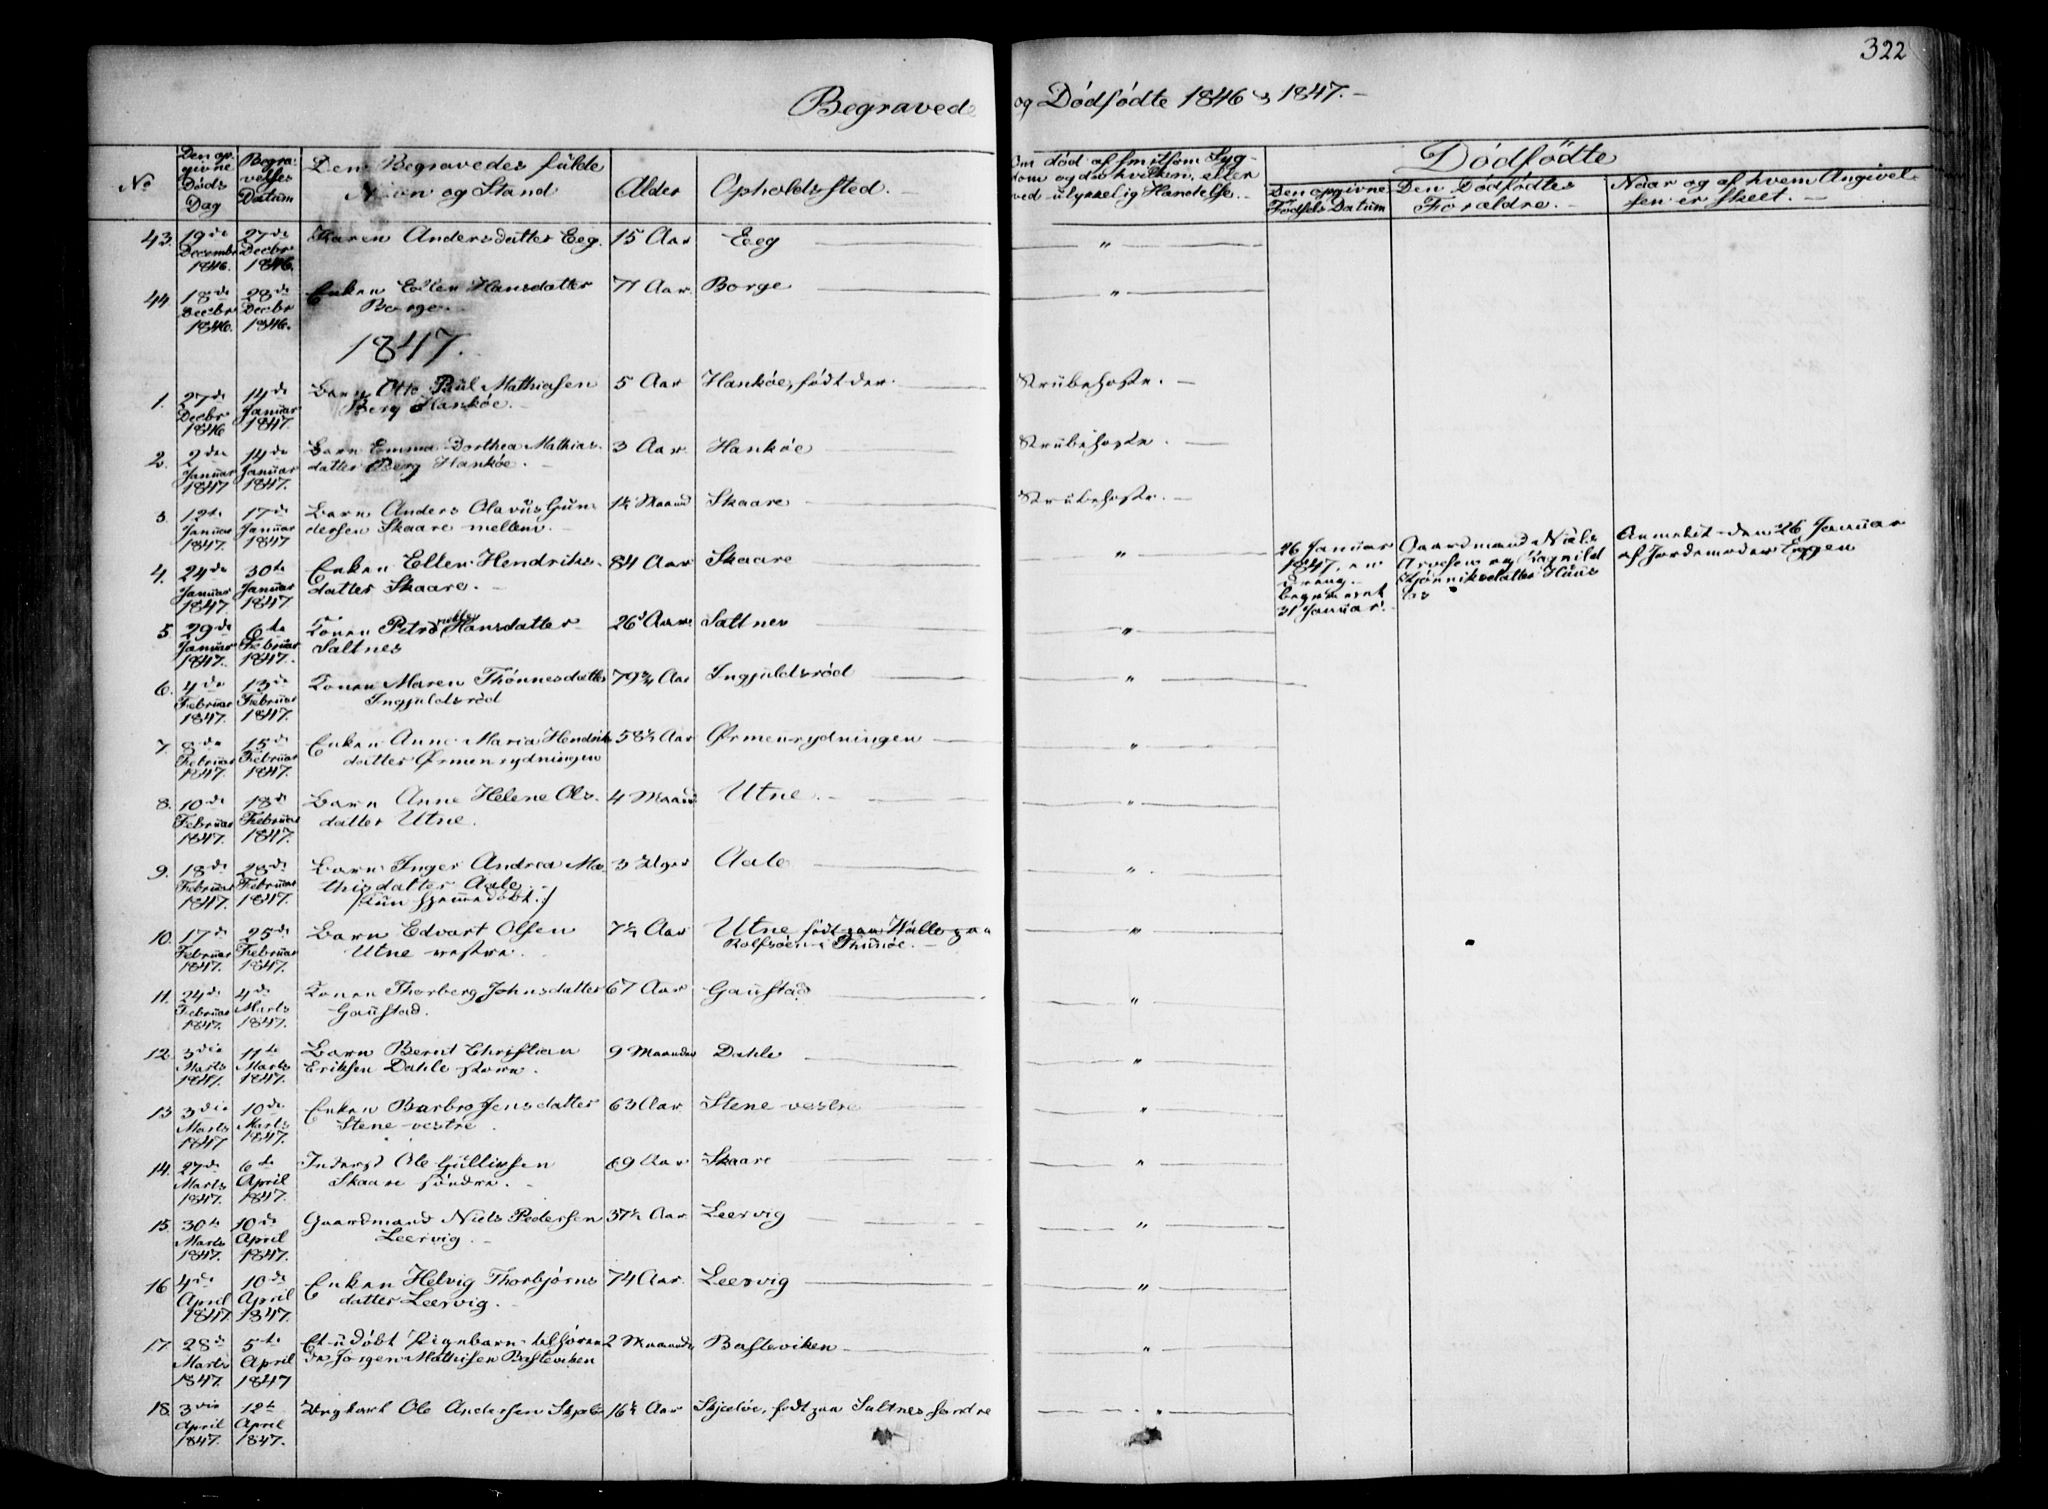 322
Begravede og Dödfödte 1846 & 1847.
No
Den opgivne Döds Dag
Begravelses Datum
Den Begravedes fulde Navn og Stand
Alder
Opholdssted.
Om död af smitsom Sygdom og da hvilken, eller ved ulykkelig Hændelse.
Dödfödte
Den opgivne Födsels Datum
Den Dödfödtes Forældre.
Naar og af hvem Angivelsen er skeet.
43. 19de December 1846. 27de Decbr 1846. Karen Andersdatter Eeg. 15 Aar Eeg "
44 18de Decbr 1846. 28de Decbr 1846. Enken Ellen Hansdatter Borge. 77 Aar. Borge "
1847.
1. 27de Decbr 1846 14de Januar 1847. Barn Otto Paul Mathiasen Berg Hankøe. 5 Aar Hankøe, födt der. Strubehoste.
2. 2den Januar 1847 14de Januar 1847. Barn Emma Dorthea Mathiasdatter Berg Hankøe. 3 Aar. Hankøe Strubehoste.
3. 12te Januar 1847. 17de Januar 1847 Barn Anders Olavus Gundersen Skaare mellem. 1¼ Maaned Skaare Strubehoste.
4. 24de Januar 1847. 30te Januar 1847 Enken Ellen Hendriksdatter Skaare. 84 Aar Skaare "
26 Januar 1847. en Dreng. begravet 31 Januar.
Gaardmand Niels Arvesen og Ragnild
Anmeldt den 26 Januar af Jordemoder Eggen
5. 29de Januar 1847. 6te Februar 1847. Konen Petronille Hansdatter Saltnes 26 Aar Saltnes "
6. 4de Februar 1847. 13de Februar 1847. Konen Maren Thönnesdatter Ingjuldsröd 79¾ Aar Ingjuldsröd "
7. 8de Februar 1847. 15de Februar 1847. Enken Anne Maria Hendriksdatter Ørmenrydningen 58½ Aar Ørmenrydningen "
8. 10de Februar 1847. 18de Februar 1847. Barn Anne Helene Olsdatter Utne. 4 Maan Utne. "
9. 18de Februar 1847. 28de Februar 1847. Barn Inger Andrea Mathisdatter Aale. /kun hjemmedöbt./ 3 Uger Aale "
10. 17de Februar 1847. 25de Februar 1847. Barn Edvart Olsen Utne vestre. 7½ Aar Utne födt paa Walle paa Rolfsöen i Thunöe. "
11. 24de Februar 1847. 4de Marts 1847. Konen Thorberg Johnsdatter Gaustad. 67 Aar Gaustad "
12. 3die Marts 1847. 11te Marts 1847. Barn Bernt Christian Eriksen Dahle store. 9 Maaneder Dahle "
13 3die Marts 1847 10de Marts 1847. Enken Barbro Jensdatter Stene vestre. 63 Aar. Stene vestre "
14. 27de Marts 1847. 6te April 1847. Inderst Ole Gulliksen Skaare söndre. 69 Aar Skaare "
15. 30te Marts 1847. 10de April 1847. Gaardmand Niels Pedersen Leervig. 37½ Aar. Leervig "
16 4de April 1847 10de April 1847. Enken Helvig Thorbjörnsdatter Leervig. 74 Aar. Leervig "
17. 28de Marts 1847. 5te April 1847 Et udöbt Pigebarn tilhörende Jörgen Mathisen Basteviken 2 Maaneder Basteviken "
18. 3die April 1847. 12te April 1847. Ungkarl Ole Andersen Skjælö 16½ Aar Skjælöe, födt paa Saltnes söndre "